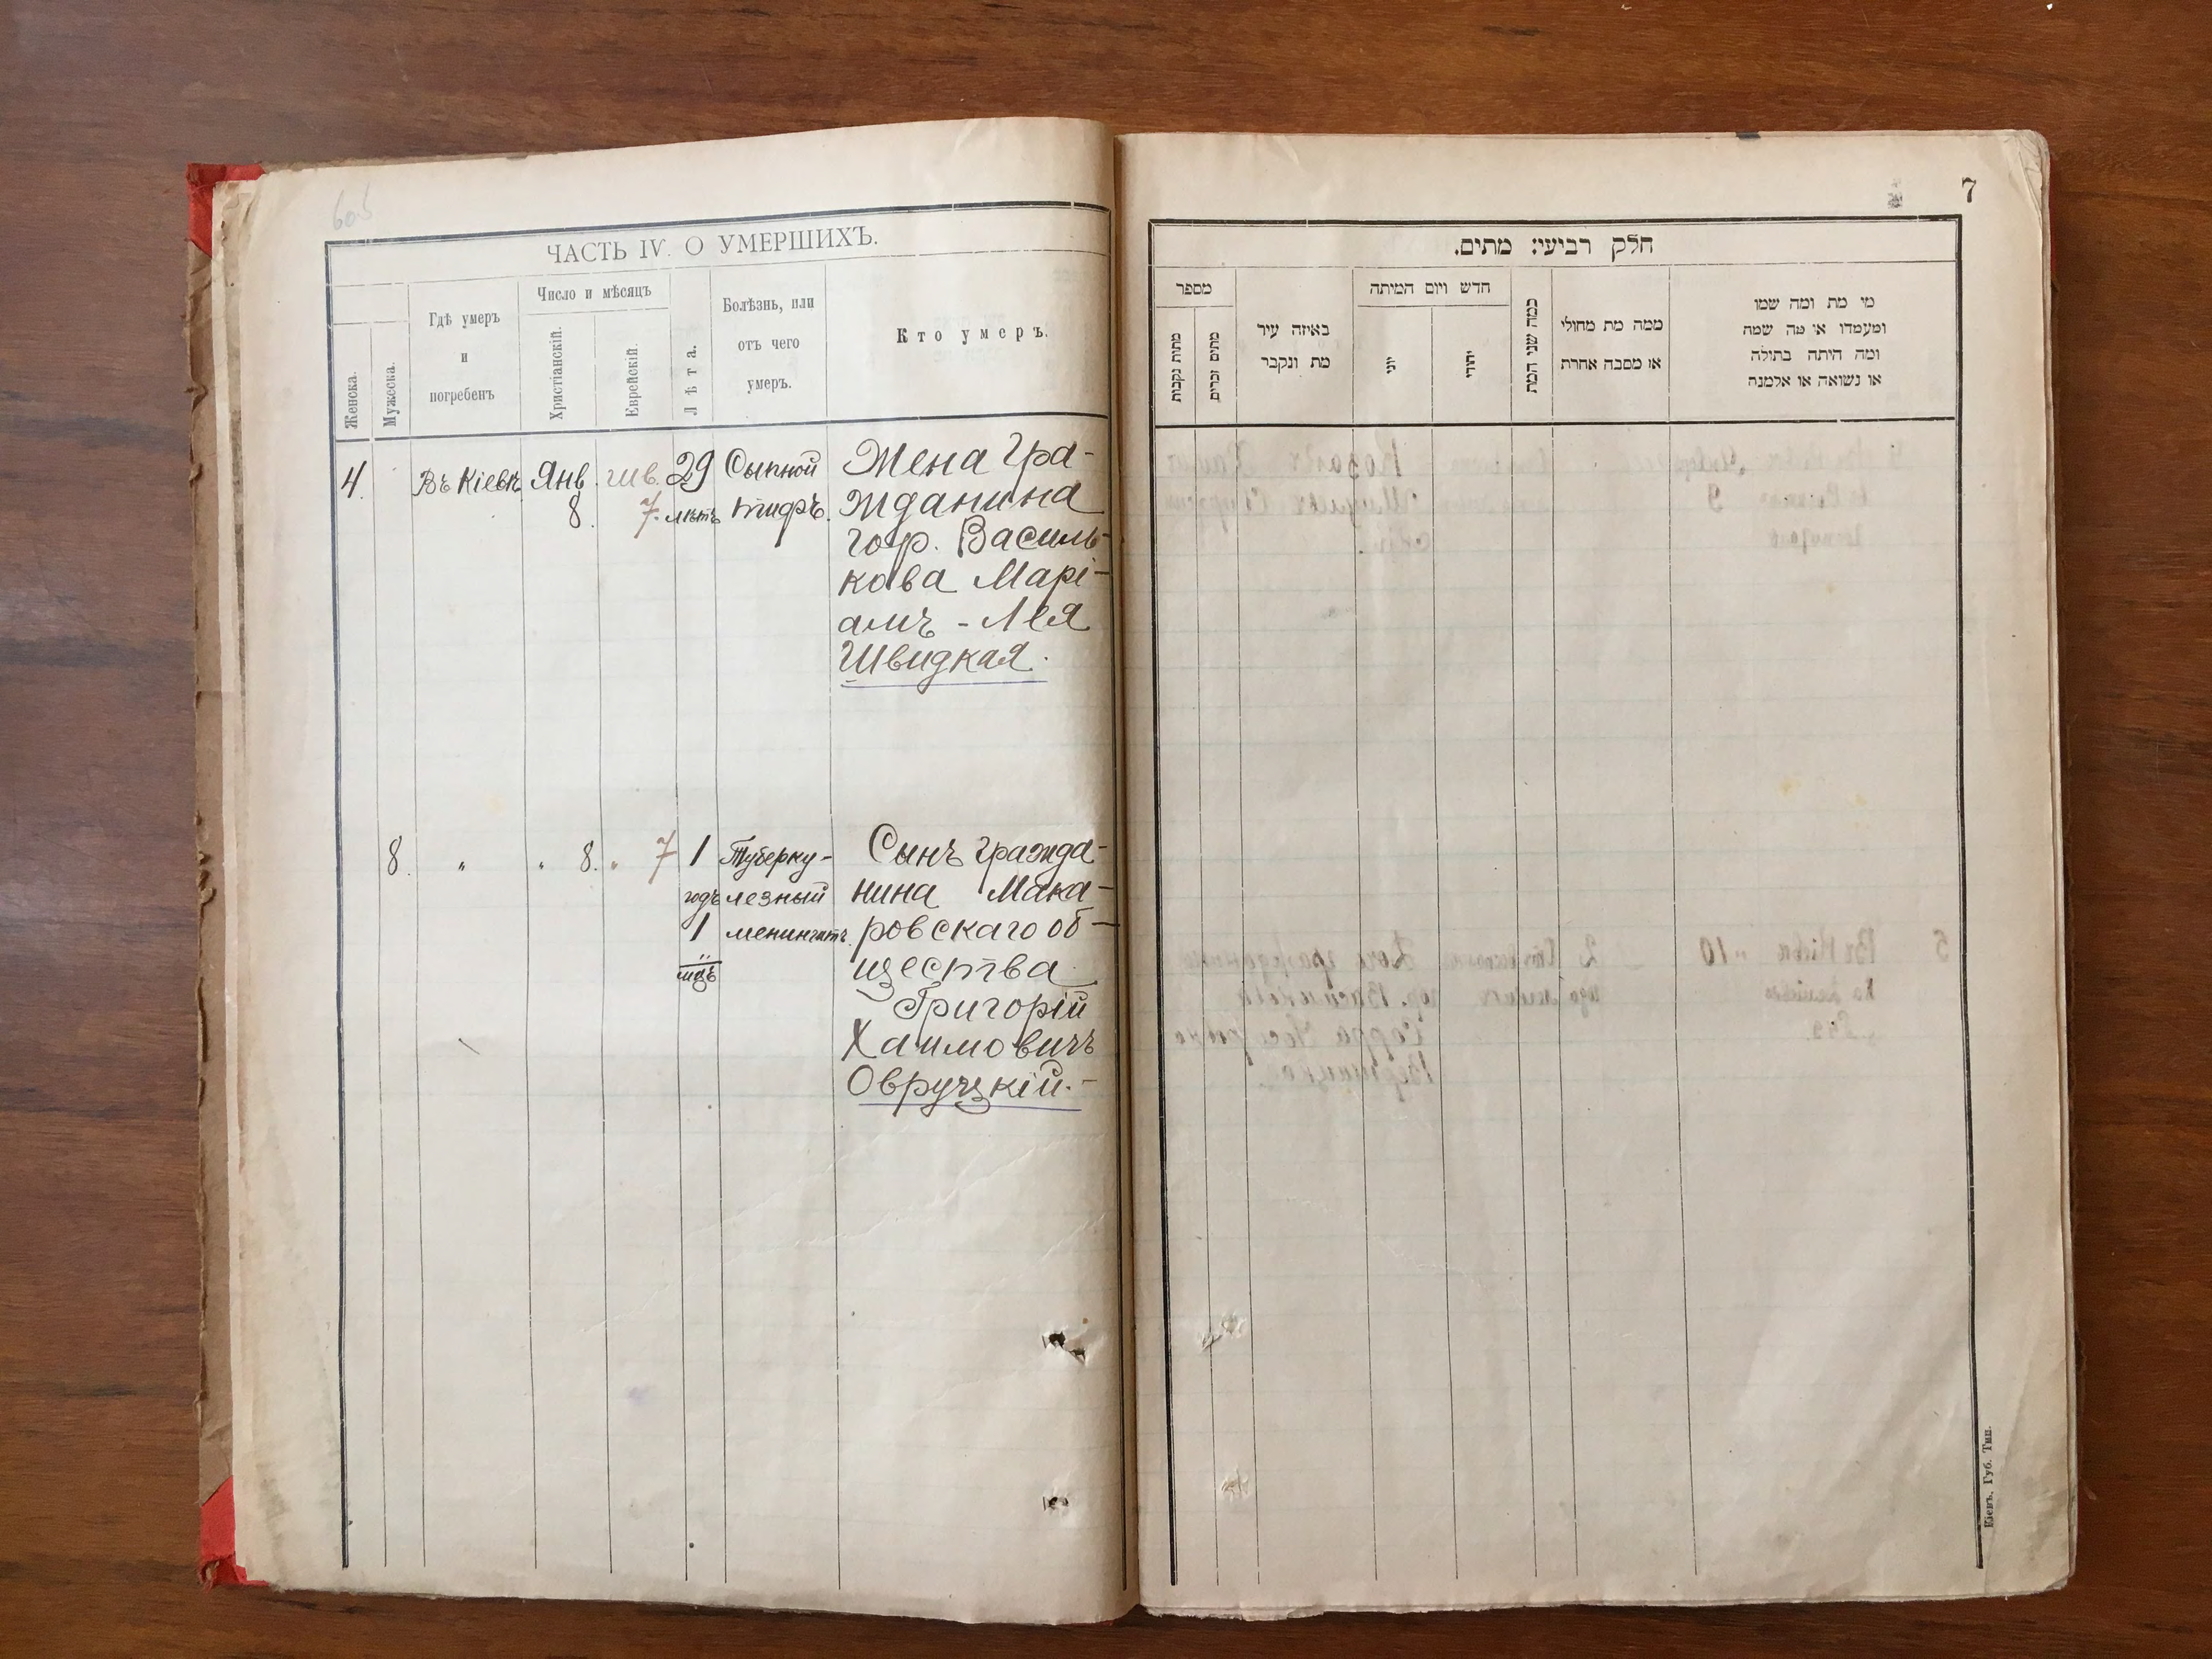 ЧАСТЬ IV. О УМЕРШИХЪ.
Женска.
Мужеска.
Гдѣ умеръ
и
погребенъ
Число и мѣсяцъ
Христіанскій.
Еврейскій.
Лѣта.
Болѣзнь, или
отъ чего
умеръ.
Кто умеръ.
4. Въ Кіевѣ Янв. шв. 29 Сыпной Жена гра-
8. 7. лѣтъ тифъ. жданина
гор. Василь-
кова Марі-
амъ - Лея
Швидкая.
8. " " 8. " 7 1 Туберку- Сынъ гражда-
годъ лезный нина Мака-
1 менингитъ. ровскаго об-
мцъ щества
Григорій
Хаимовичъ
Овручскій.-
7
חלק רביעי: מתים.
מספר
מתות נקבות
מתים זכרים
באיזה עיר
מת ונקבר
חדש ויום המיתה
יוני
יהודי
כמה שני המת
ממה מת מחולי
או מסבה אחרת
מי מת ומה שמו
ומעמדו או מה שמה
ומה היתה בתולה
או נשואה או אלמנה
Кіевъ, Губ. Тип.